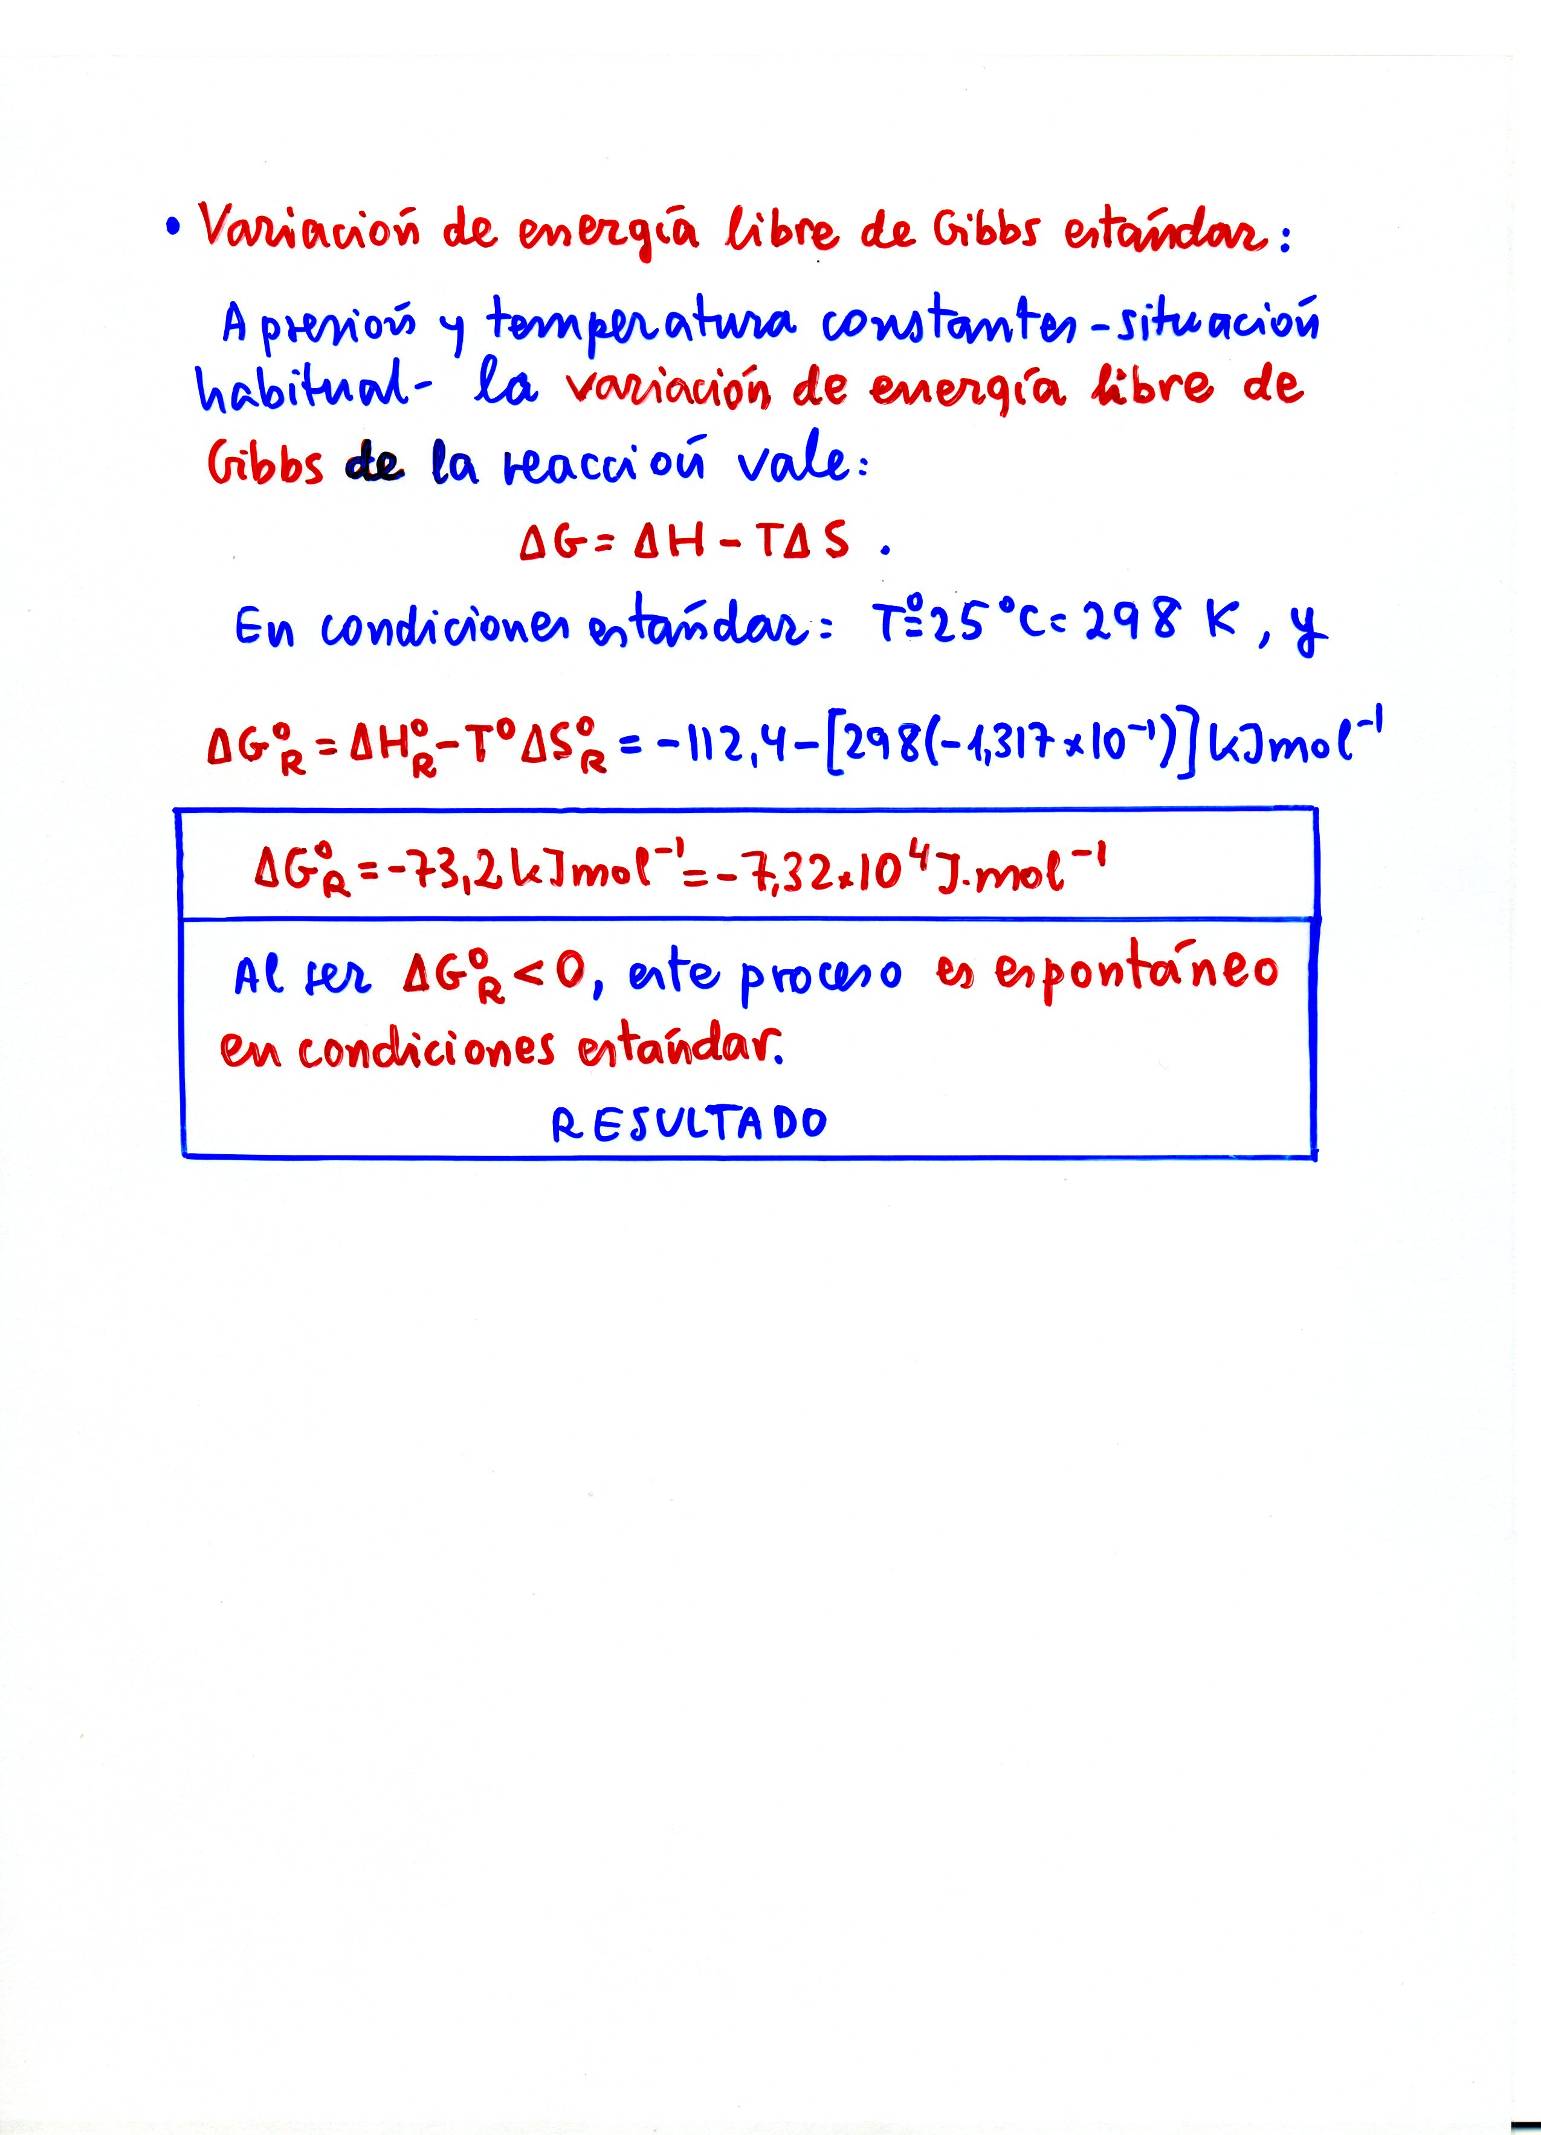 • Variación de energía libre de Gibbs estándar:
A presión y temperatura constantes - situación
habitual - la variación de energía libre de
Gibbs de la reacción vale:
ΔG = ΔH - TΔS .
En condiciones estándar: T° = 25 °C = 298 K, y
ΔG°R = ΔH°R - T°ΔS°R = -112,4 - [298(-1,317 × 10⁻¹)] kJ mol⁻¹
ΔG°R = -73,2 kJ mol⁻¹ = -7,32 × 10⁴ J·mol⁻¹
Al ser ΔG°R < 0, este proceso es espontáneo
en condiciones estándar.
RESULTADO